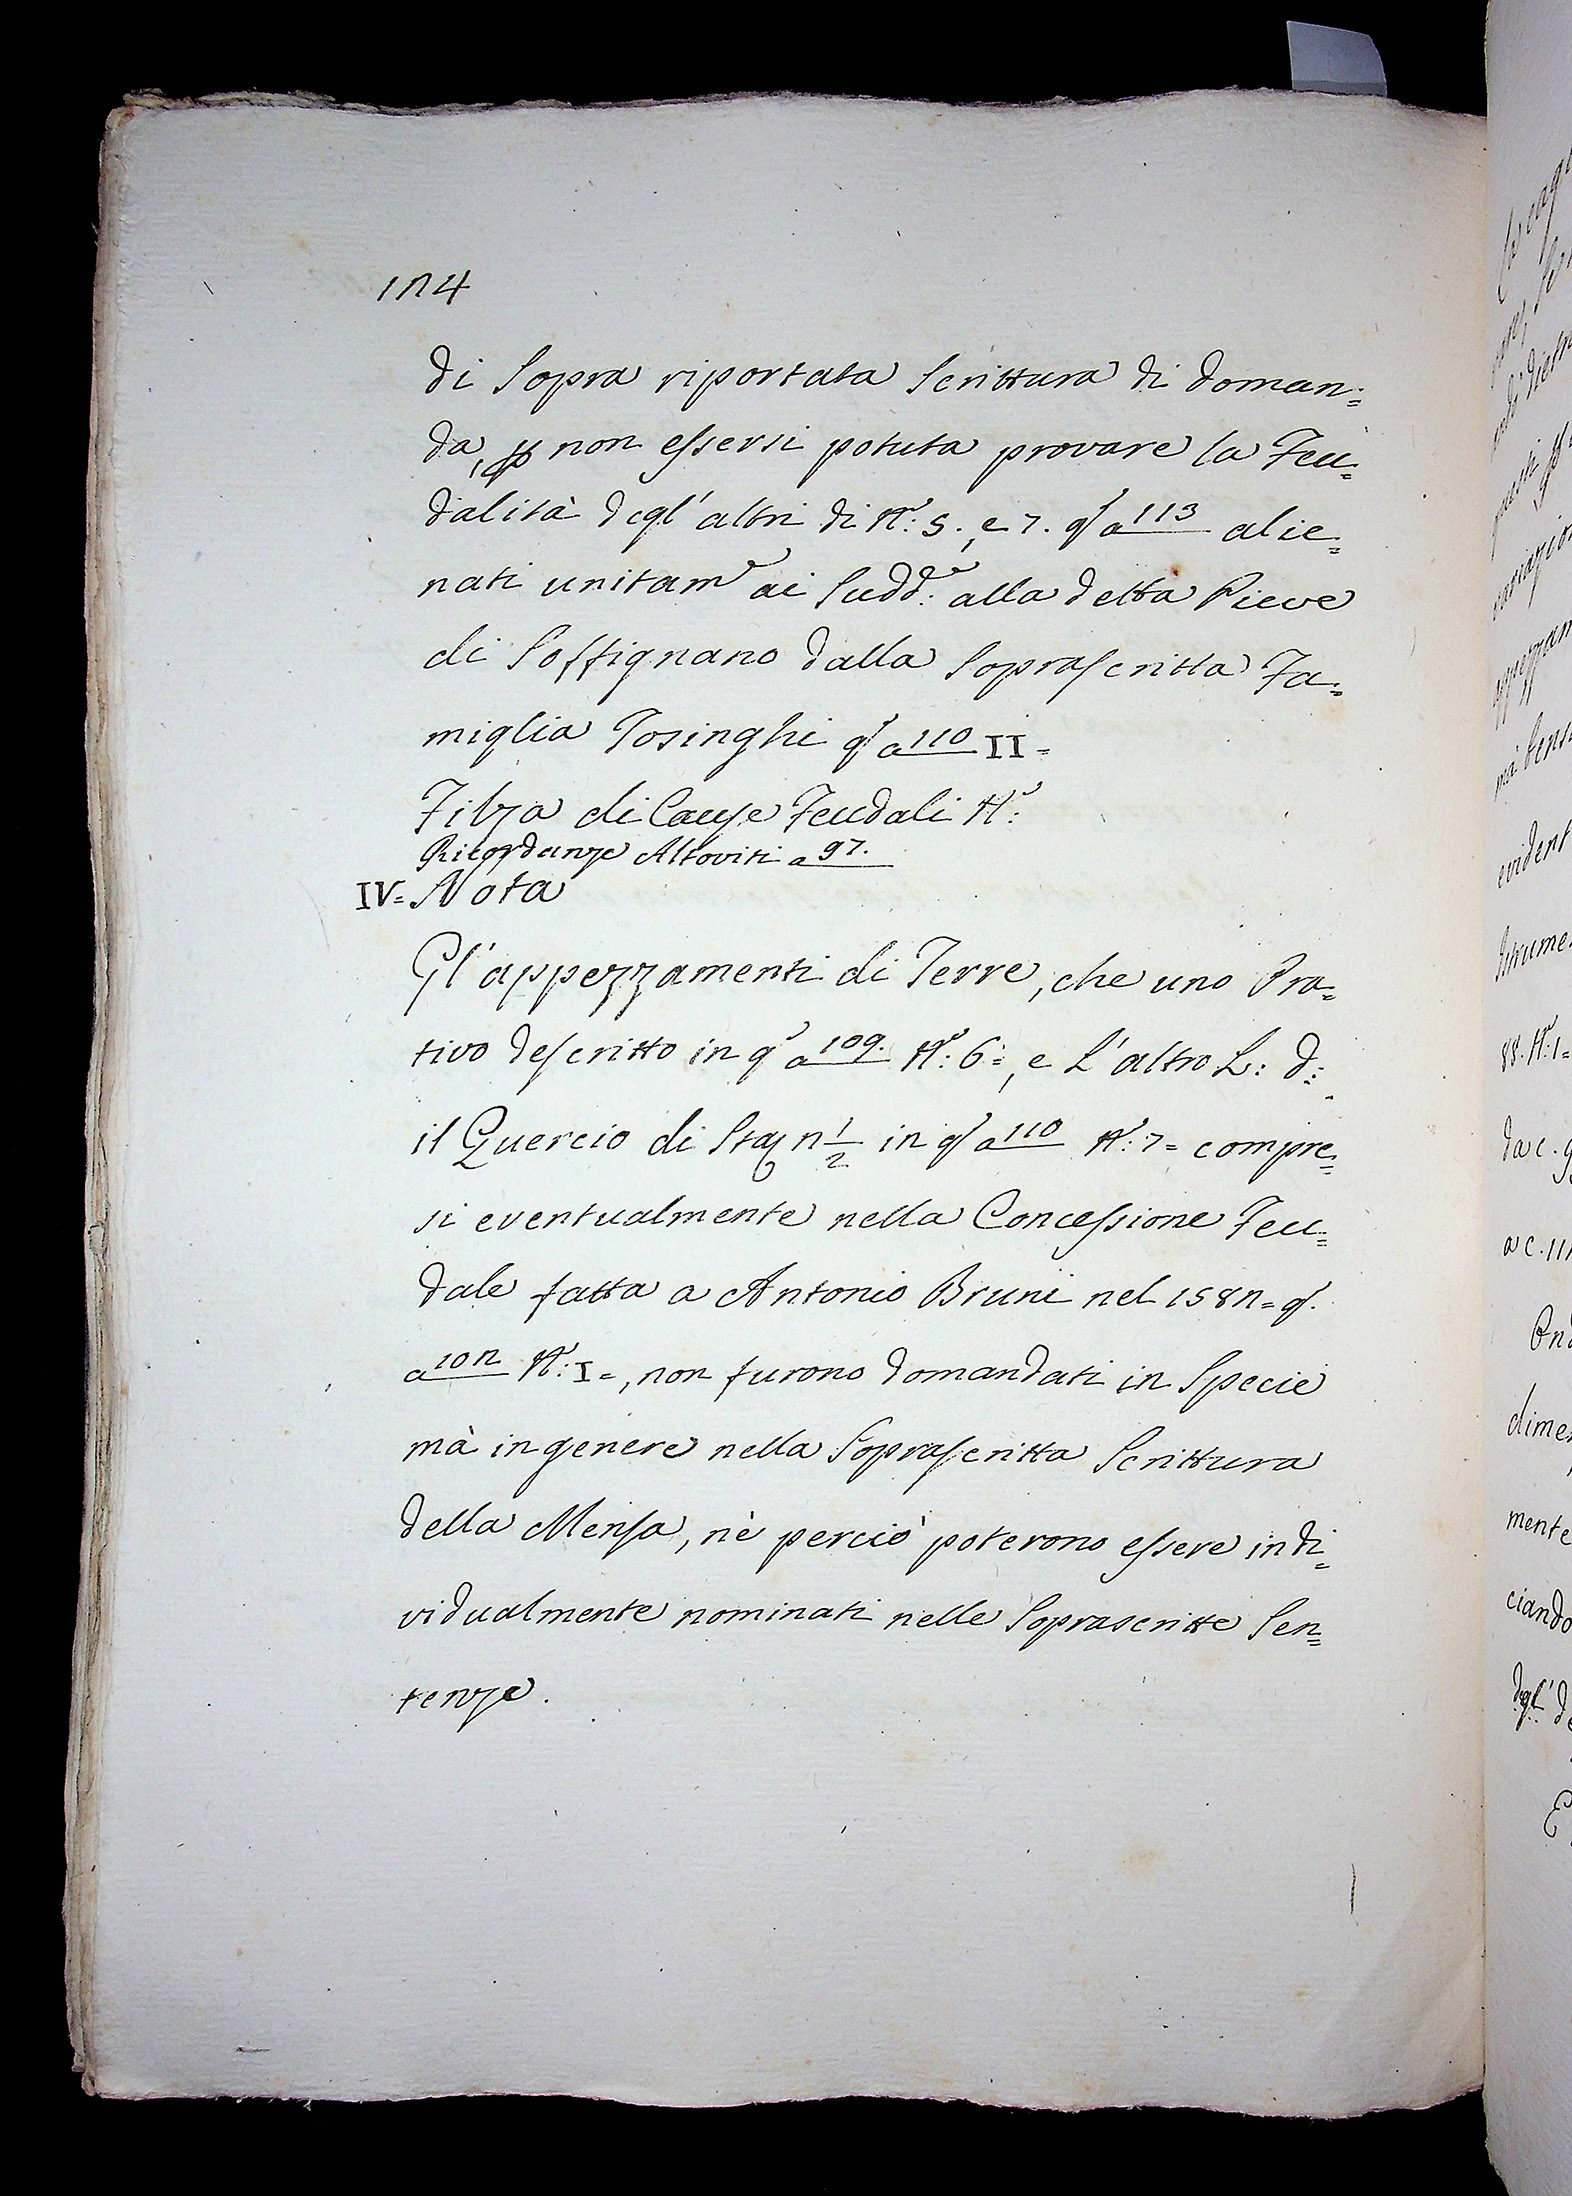 124
di Sopra riportata Scrittura di doman=
da, p non essersi potuta provare la Feu=
dalità degl' altri di N.º: 5., e 7. qº a 113 alie=
nati unitamᵉ ai Suddⁱ: alla detta Pieve
di Soffignano dalla Soprascritta Fa=
miglia Tosinghi qº a 110 II=
Filza di Cause Feudali N.º:
Ricordanze Altoviti a 97.
IV= Nota
Gl' appezzamenti di Terre, che uno Pra=
tivo descritto in qº a 109. N.º: 6=, e L' altro L: d:
il Quercio di Sta n 1/2 in qº a 110 N.º: 7= compre=
si eventualmente nella Concessione Feu=
dale fatta a Antonio Bruni nel 1582= qº.
a 102 N.º: I=, non furono domandati in Specie
mà in genere nella Soprascritta Scrittura
della Mensa, nè perciò poterono essere indi=
vidualmente nominati nelle Soprascritte Sen=
tenze.